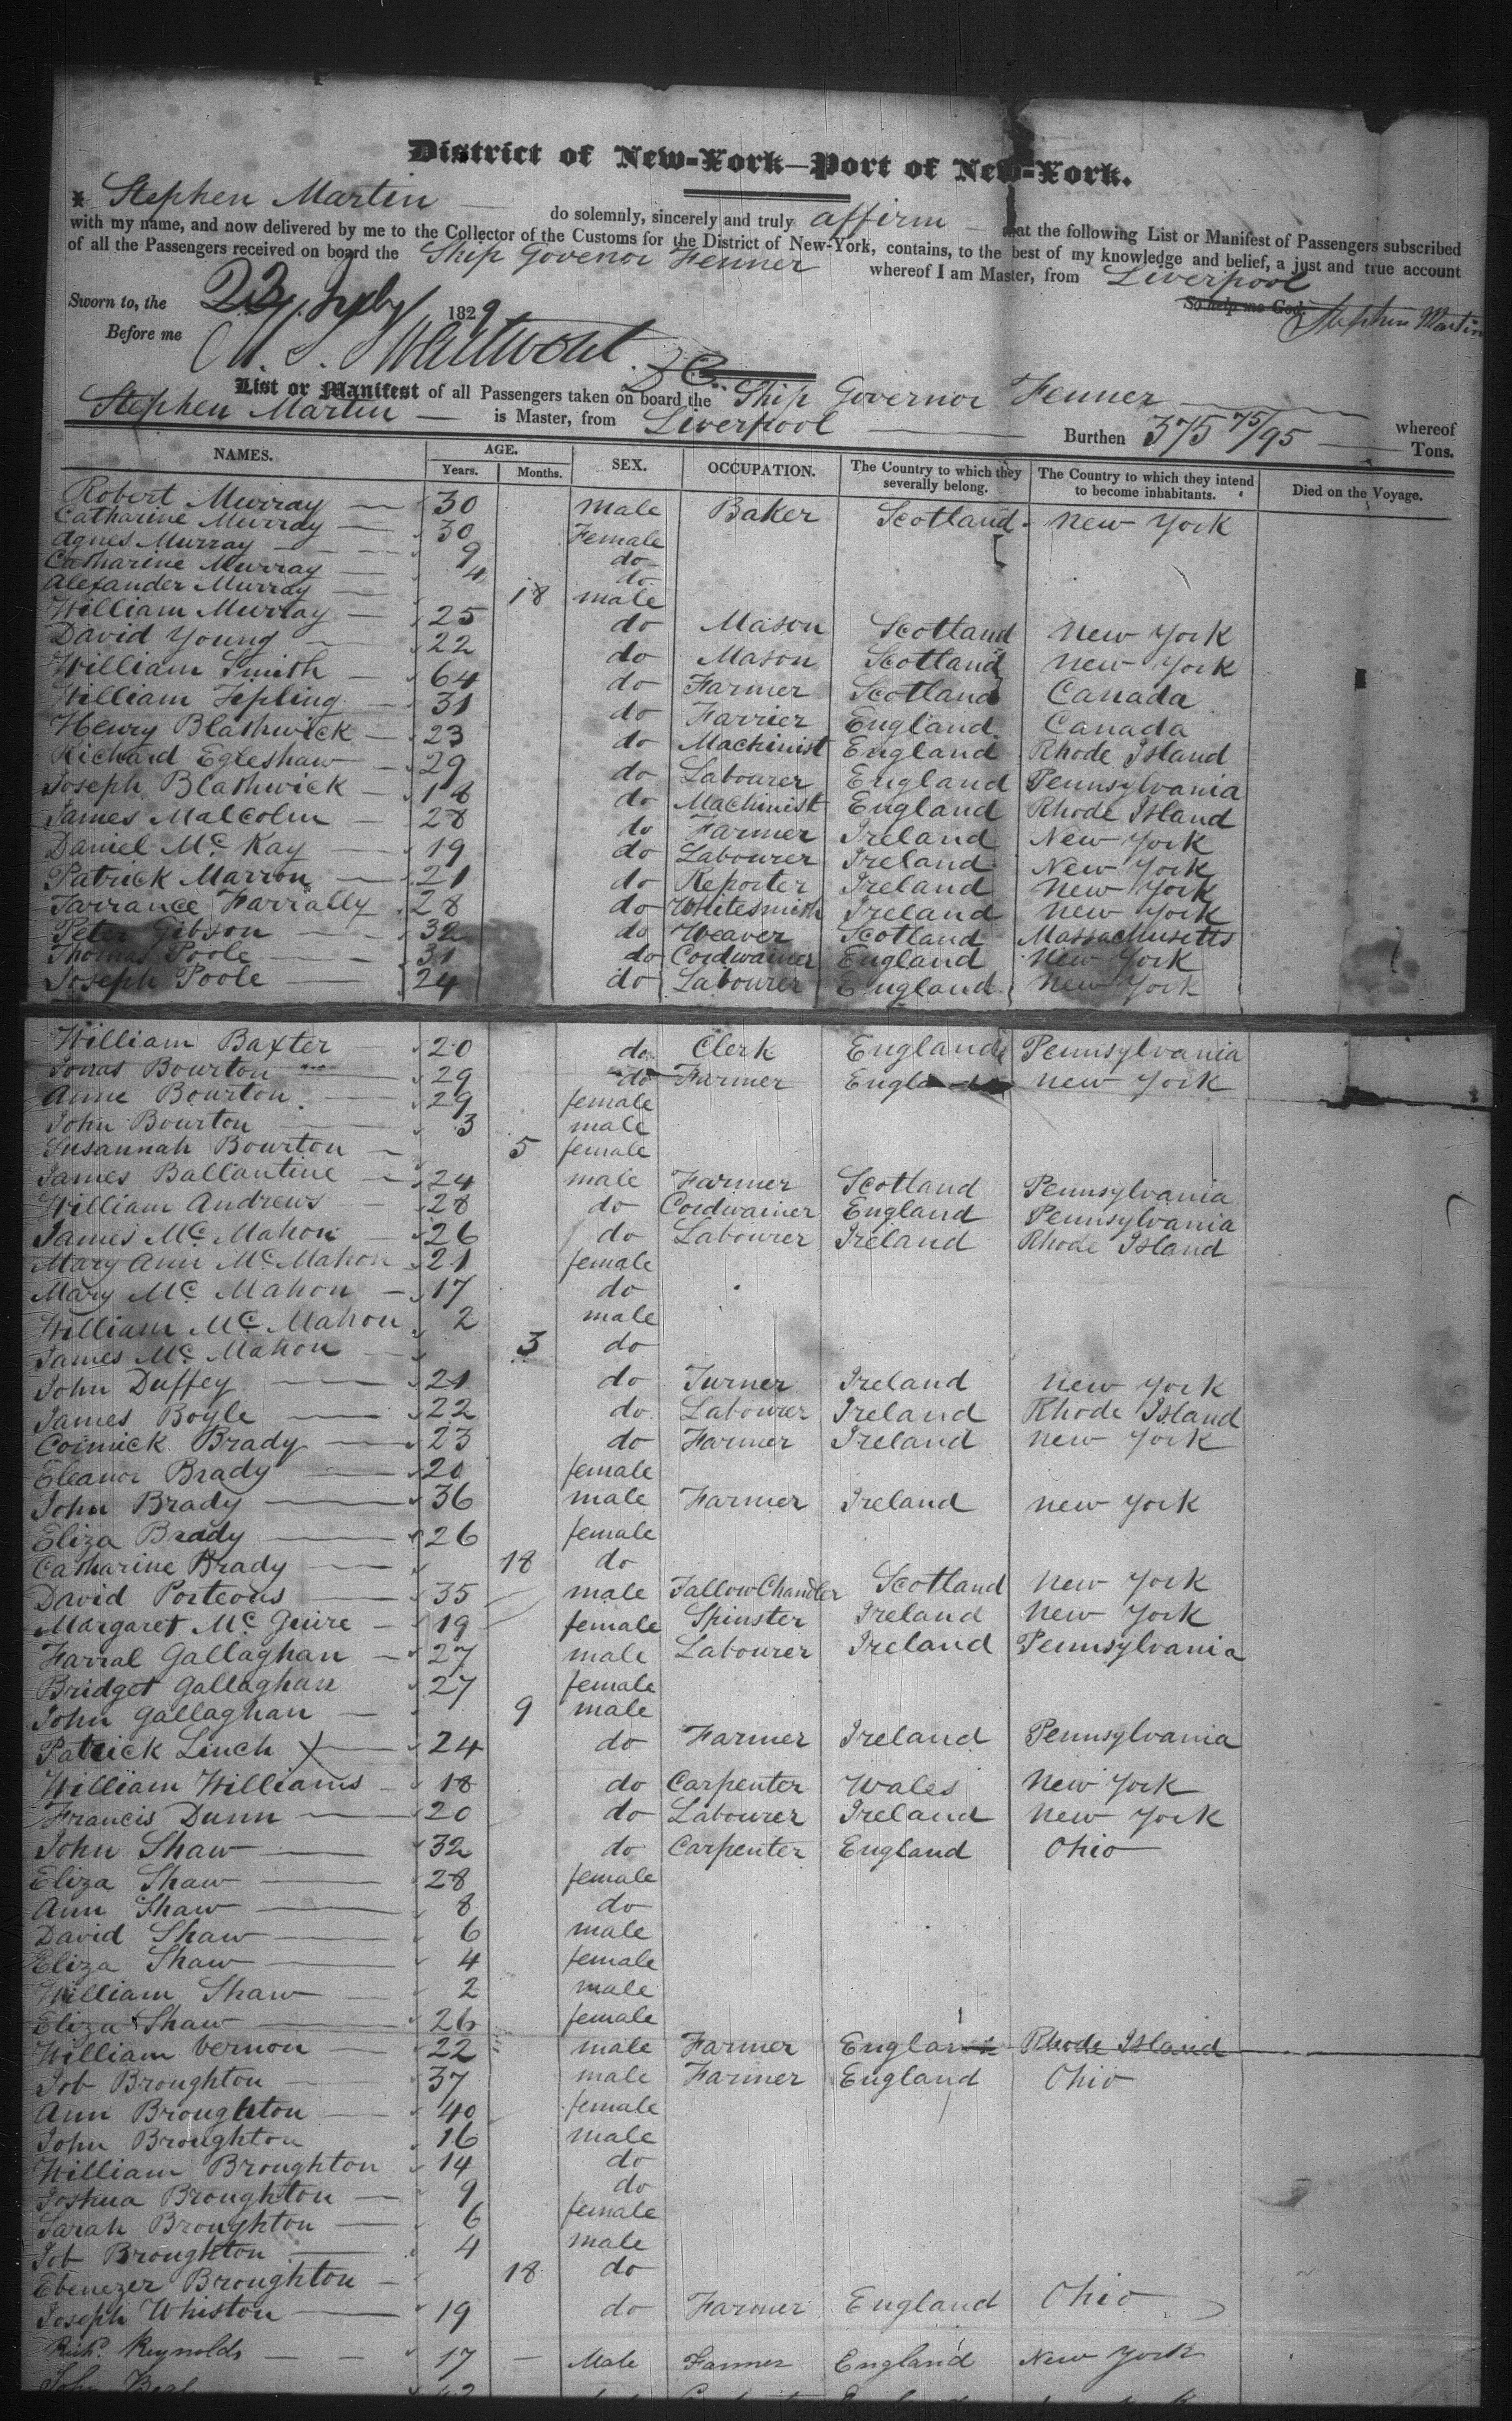 District of New-York—Port of New-York.
I Stephen Martin do solemnly, sincerely and truly affirm that the following List or Manifest of Passengers subscribed
with my name, and now delivered by me to the Collector of the Customs for the District of New-York, contains, to the best of my knowledge and belief, a just and true account
of all the Passengers received on board the Ship Govenor Fenner whereof I am Master, from Liverpool
Sworn to, the 23 1829 So help me God. Stephen Martin
Before me
List or Manifest of all Passengers taken on board the Ship Governor Fenner whereof
Stephen Martin is Master, from Liverpool Burthen 375 75/95 Tons.
NAMES. AGE. Years. Months. SEX. OCCUPATION. The Country to which they severally belong. The Country to which they intend to become inhabitants. Died on the Voyage.
Robert Murray 30 male Baker Scotland New York
Catharine Murray 30 Female
Agnes Murray 9 do
Catharine Murray 4 do
Alexander Murray 18 male
William Murray 25 do Mason Scotland New York
David Young 22 do Mason Scotland New York
William Smith 64 do Farmer Scotland Canada
William Tepling 31 do Farrier England Canada
Henry Blashwick 23 do Machinist England Rhode Island
Richard Egleshaw 29 do Labourer England Pennsylvania
Joseph Blashwick 18 do Machinist England Rhode Island
James Malcolm 28 do Farmer Ireland New York
Daniel Mc Kay 19 do Labourer Ireland New York
Patrick Marron 21 do Reporter Ireland New York
Tarrance Farrally 28 do Whitesmith Ireland New York
Peter Gibson 32 do Weaver Scotland Massachusetts
Thomas Poole 31 do Cordwainer England New York
Joseph Poole 24 do Labourer England New York
William Baxter 20 do Clerk England Pennsylvania
Jonas Bourton 29 do Farmer England New York
Anne Bourton 29 female
John Bourton 3 male
Susannah Bourton 5 female
James Ballantine 24 male Farmer Scotland Pennsylvania
William Andrews 28 do Cordwainer England Pennsylvania
James Mc Mahon 26 do Labourer Ireland Rhode Island
Mary Ann Mc Mahon 21 female
Mary Mc Mahon 17 do
William Mc Mahon 2 male
James Mc Mahon 3 do
John Duffey 21 do Turner Ireland New York
James Boyle 22 do Labourer Ireland Rhode Island
Cormick Brady 23 do Farmer Ireland New York
Eleanor Brady 20 female
John Brady 36 male Farmer Ireland New York
Eliza Brady 26 female
Catharine Brady 18 do
David Porteous 35 male Tallow Chandler Scotland New York
Margaret Mc Guire 19 female Spinster Ireland New York
Farral Gallaghan 27 male Labourer Ireland Pennsylvania
Bridget Gallaghan 27 female
John Gallaghan 9 male
Patrick Linch X 24 do Farmer Ireland Pennsylvania
William Williams 18 do Carpenter Wales New York
Francis Dunn 20 do Labourer Ireland New York
John Shaw 32 do Carpenter England Ohio
Eliza Shaw 28 female
Ann Shaw 8 do
David Shaw 6 male
Eliza Shaw 4 female
William Shaw 2 male
Eliza Shaw 26 female
William Vernon 22 male Farmer England Rhode Island
Job Broughton 37 male Farmer England Ohio
Ann Broughton 40 female
John Broughton 16 male
William Broughton 14 do
Joshua Broughton 9 do
Sarah Broughton 6 female
Job Broughton 4 male
Ebenezer Broughton 18 do
Joseph Whiston 19 do Farmer England Ohio
Richd. Reynolds 17 Male Farmer England New York
John Beal